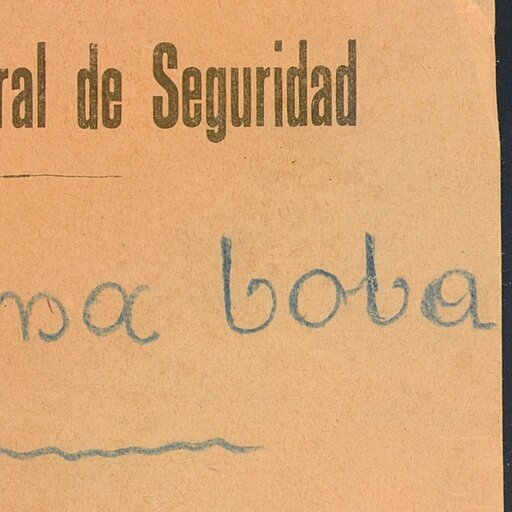 ral de Seguridad
na boba